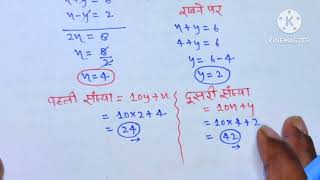 x - y = 2
2x = 8
x = 8/2
x = 4
रखने पर
x + y = 6
4 + y = 6
y = 6 - 4
y = 2
पहली संख्या = 10y + x
= 10×2+4
= 24
दूसरी संख्या
= 10x + y
= 10×4+2
= 42
KINEMASTER